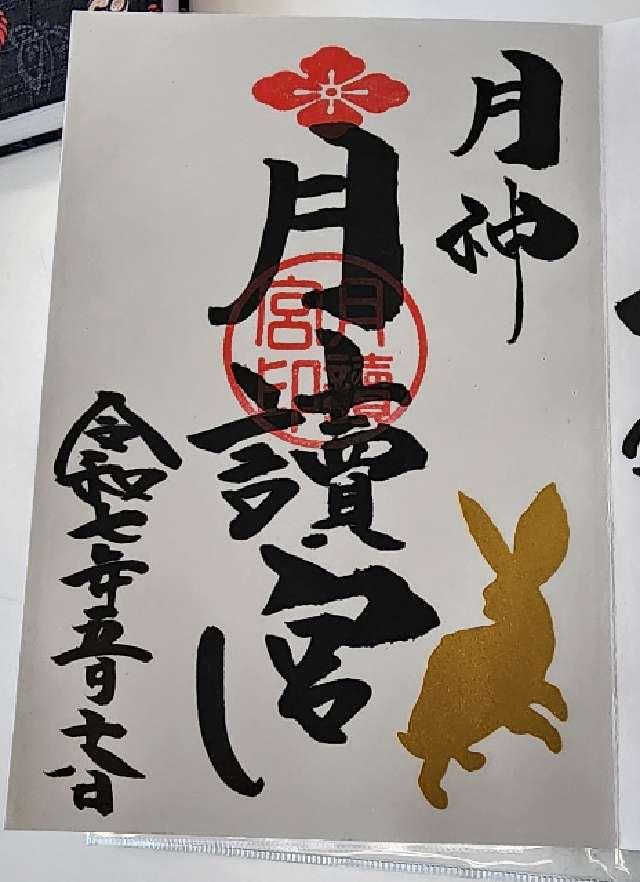 月神
月讀宮
月讀宮印
令和七年五月十八日